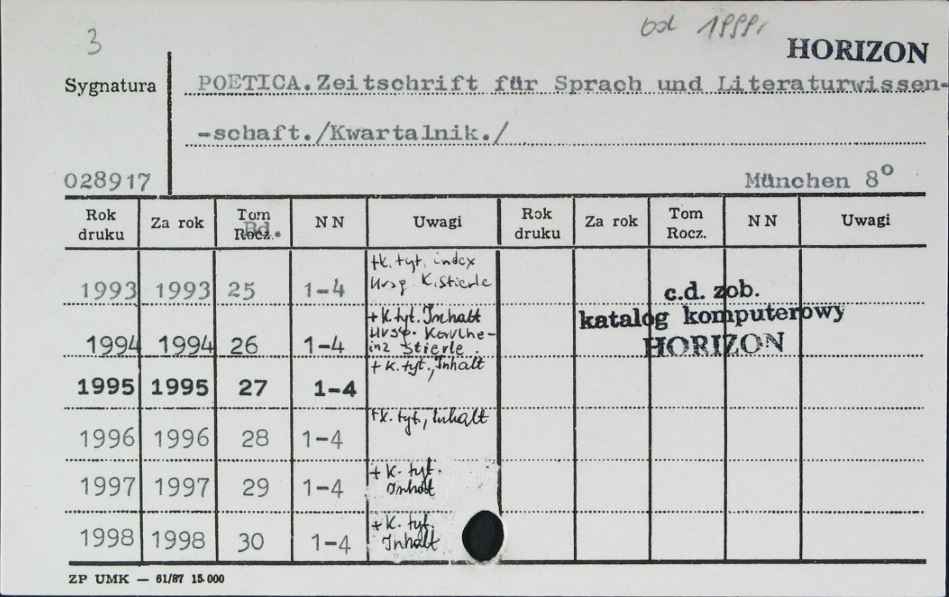 3
od 1999r.
HORIZON
Sygnatura
POETICA.Zeitschrift für Sprach und Literaturwissen-
-schaft./Kwartalnik./
028917
München 8°
Rok druku Za rok Tom Rocz. Bd. NN Uwagi Rok druku Za rok Tom Rocz. NN Uwagi
1993 1993 25 1-4 +k. tyt. index
Hrsg K. Stierle
1994 1994 26 1-4 +k tyt. Inhalt
Hrsg. Karlhe-
inz Stierle.
1995 1995 27 1-4 +k. tyt., Inhalt
1996 1996 28 1-4 +k. tyt., Inhalt
1997 1997 29 1-4 +k. tyt.
Inhalt
1998 1998 30 1-4 +k. tyt.
Inhalt
c.d. zob.
katalog komputerowy
HORIZON
ZP UMK — 61/87 15.000